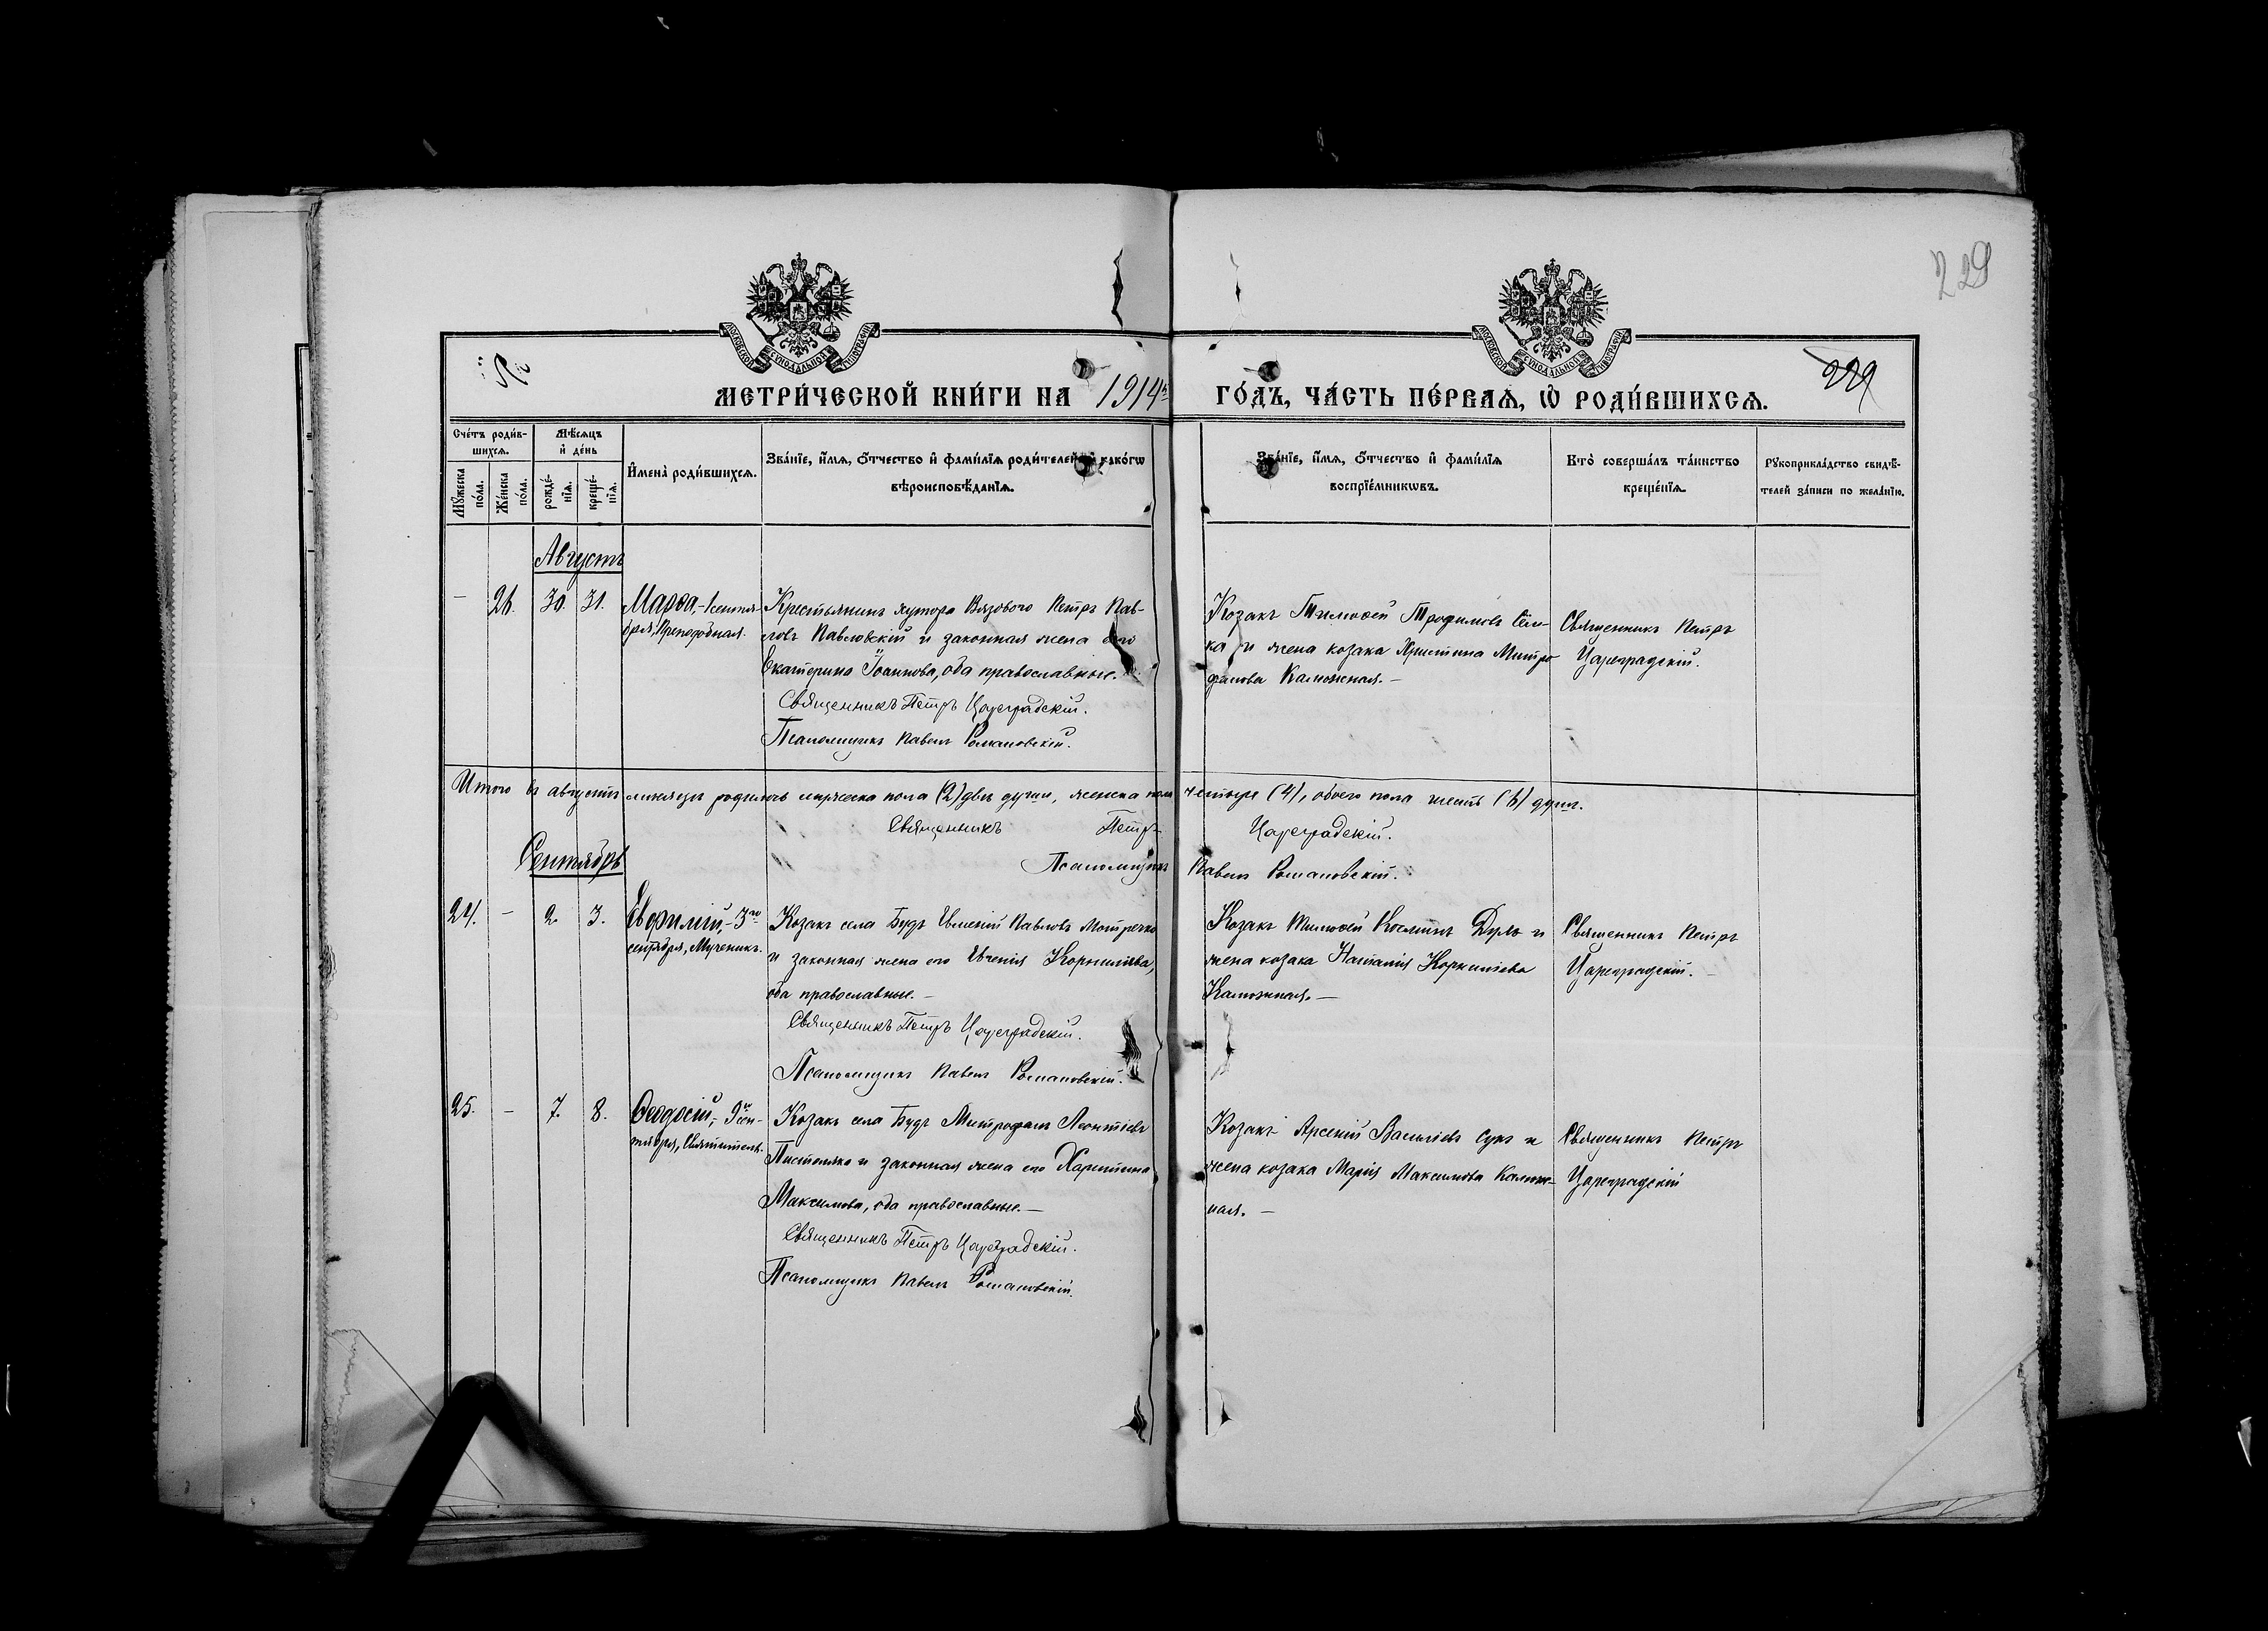 229
МЕТРИ́ЧЕСКОЙ КНИ́ГИ НА 1914й ГО́ДЪ, ЧА́СТЬ ПЕ́РВАѦ, Ѡ РОДИ́ВШИХСѦ.
229
Сче́тъ роди́в-
шихсѧ.
Мꙋ́жеска
по́ла.
Же́нска
по́ла.
Мѣ́сѧцъ
и҆ де́нь
рожде́-
нїѧ.
креще́-
нїѧ.
И҆мена̀ роди́вшихсѧ.
Зва́нїе, и҆́мѧ, ѻ҆́тчество и҆ фами́лїѧ роди́телей и҆ како́гѡ
вѣроисповѣ́данїѧ.
Зва́нїе, и҆́мѧ, ѻ҆́тчество и҆ фами́лїѧ
воспрїе́мникѡвъ.
Кто̀ соверша́лъ та́инство
креще́нїѧ.
Рꙋкоприкла́дство свидѣ́-
телей за́писи по жела́нїю.
Августъ
– 26. 30. 31.
Марѳа,-1 сентя-
бря, Преподобная.
Крестьянинъ хутора Вязового Петръ Пав-
ловъ Павловскій и законная жена его
Екатерина Іоаннова, оба православные.
Священникъ Петръ Цареградскій.
Псаломщикъ Павелъ Романовскій.
Козакъ Тимоѳей Трофимовъ
ка и жена козака Христина Митро-
фанова Каложная.-
Священникъ Петръ
Цареградскій.
Итого въ августѣ мѣсяцѣ родилось мужеска пола (2) двѣ души, женска пола четыре (4), обоего пола шесть (6) душъ.
Священникъ Петръ Цареградскій.
Псаломщикъ Павелъ Романовскій.
Сентябрь
24. – 2. 3.
Евѳимій,-3го
сентября, Мученикъ.
Козакъ села Будъ Павловъ
и законная жена его Евгенія Корниліева,
оба православные.-
Священникъ Петръ Цареградскій.
Псаломщикъ Павелъ Романовскій.
Козакъ Тимоѳей Косминъ Дуль и
жена козака Наталія Корниліева
Каложная.-
Священникъ Петръ
Цареградскій.
25. – 7. 8.
Ѳеодосій,- 9 сен-
тября, Святитель.
Козакъ села Будъ Митрофанъ Леонтіевъ
и законная жена его Харитина
Максимова, оба православные.-
Священникъ Петръ Цареградскій.
Псаломщикъ Павелъ Романовскій.
Козакъ Арсеній Васильевъ Сукъ и
жена козака Марія Максимова Калож-
ная. -
Священникъ Петръ
Цареградскій